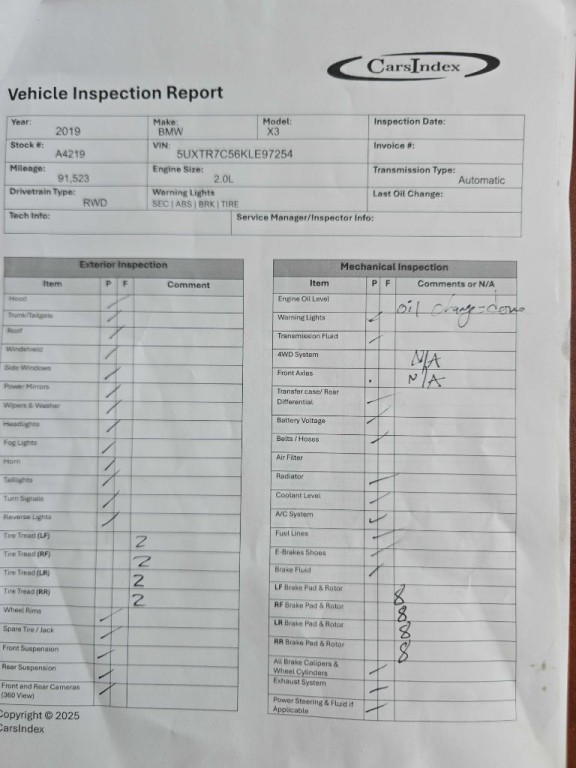 CarsIndex
Vehicle Inspection Report
Year: 2019 Make: BMW Model: X3 Inspection Date:
Stock #: A4219 VIN: 5UXTR7C56KLE97254 Invoice #:
Mileage: 91,523 Engine Size: 2.0L Transmission Type: Automatic
Drivetrain Type: RWD Warning Lights SEC | ABS | BRK | TIRE Last Oil Change:
Tech Info: Service Manager/Inspector Info:
Exterior Inspection
Item P F Comment
Hood
Trunk/Tailgate
Roof
Windshield
Side Windows
Power Mirrors
Wipers & Washer
Headlights
Fog Lights
Horn
Taillights
Turn Signals
Reverse Lights
Tire Tread (LF) 2
Tire Tread (RF) 2
Tire Tread (LR) 2
Tire Tread (RR) 2
Wheel Rims
Spare Tire / Jack
Front Suspension
Rear Suspension
Front and Rear Cameras
(360 View)
Mechanical Inspection
Item P F Comments or N/A
Engine Oil Level oil change-done
Warning Lights
Transmission Fluid
4WD System N/A
Front Axles N/A
Transfer case/ Rear
Differential
Battery Voltage
Belts / Hoses
Air Filter
Radiator
Coolant Level
A/C System
Fuel Lines
E-Brakes Shoes
Brake Fluid
LF Brake Pad & Rotor 8
RF Brake Pad & Rotor 8
LR Brake Pad & Rotor 8
RR Brake Pad & Rotor 8
All Brake Calipers &
Wheel Cylinders
Exhaust System
Power Steering & Fluid if
Applicable
Copyright © 2025
CarsIndex